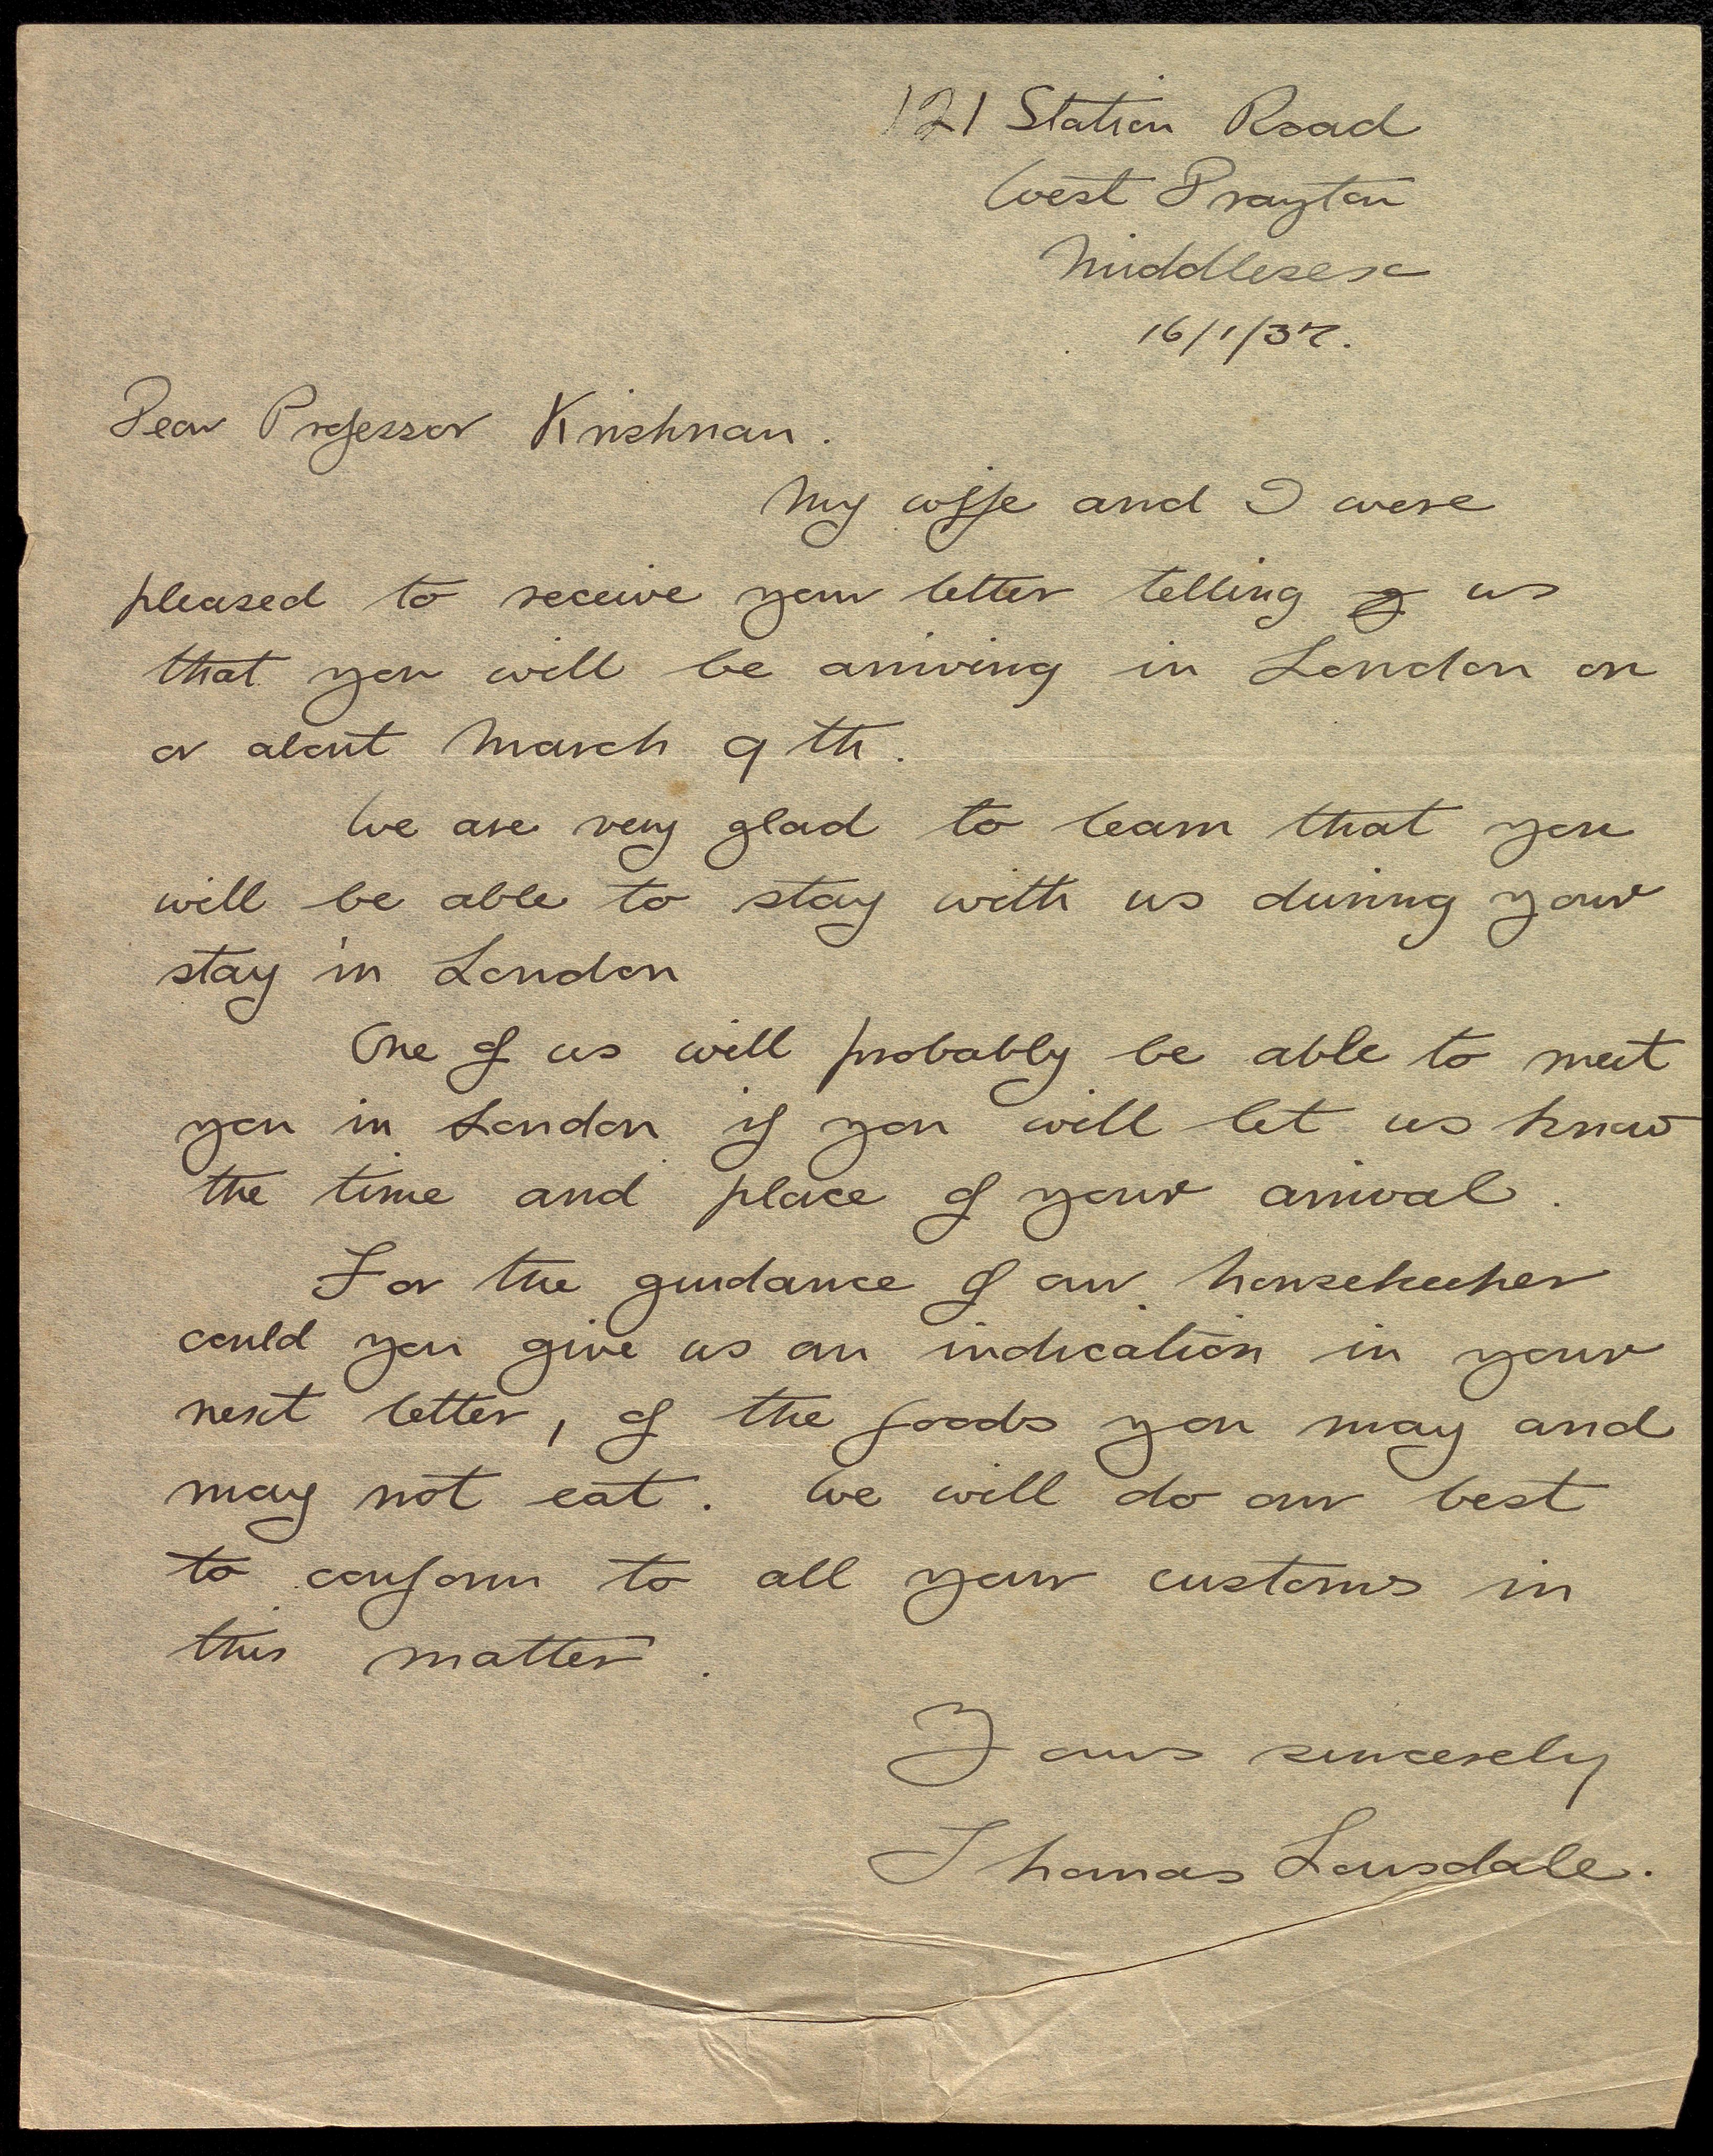 121 Station Road
West Drayton
Middlesex
16/1/37.
Dear Professor Krishnan.
My wife and I were
pleased to receive your letter telling us
that you will be arriving in London on
or about March 9th.
We are very glad to learn that you
will be able to stay with us during your
stay in London
One of us will probably be able to meet
you in London if you will let us know
the time and place of your arrival.
For the guidance of our housekeeper
could you give us an indication in your
next letter, of the foods you may and
may not eat. We will do our best
to conform to all your customs in
this matter.
Yours sincerely
Thomas Lonsdale.